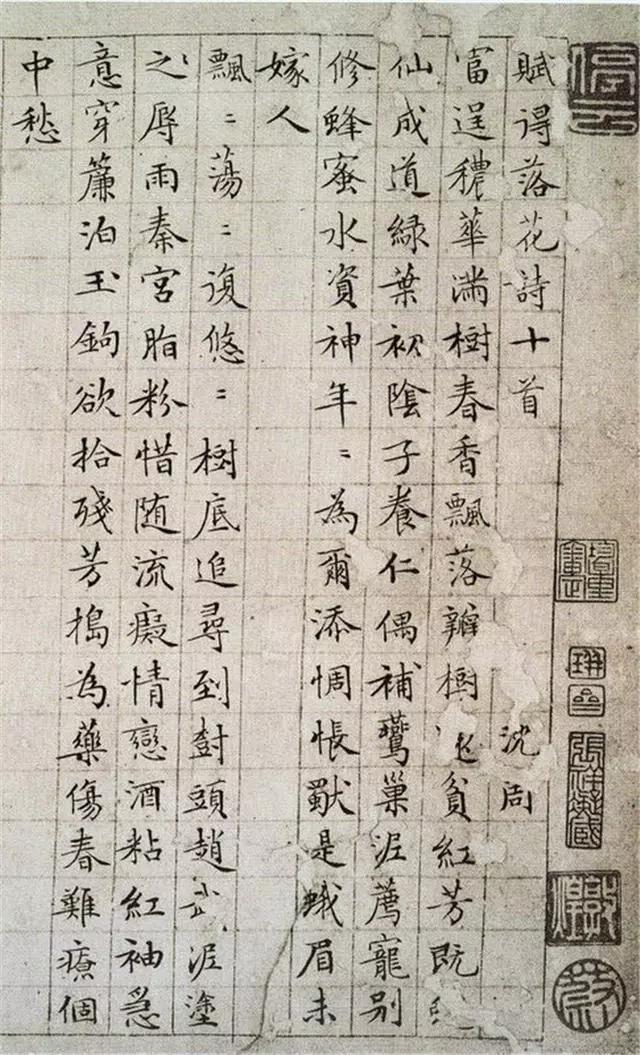 賦得落花詩十首
沈周
富逞穠華滿樹春香飄落瓣樹飞貧紅芳既
仙成道綠葉初陰子養仁偶補鶯巢泥薦寵別
修蜂蜜水資神年〻為爾添惆悵獸是蛾眉未
嫁人
飄〻蕩〻復悠〻樹底追尋到樹頭趙武泥塗
之辱雨秦宮脂粉惜随流癡情戀酒粘紅袖急
意穿簾泊玉鉤欲拾殘芳搗為藥傷春難療個
中愁